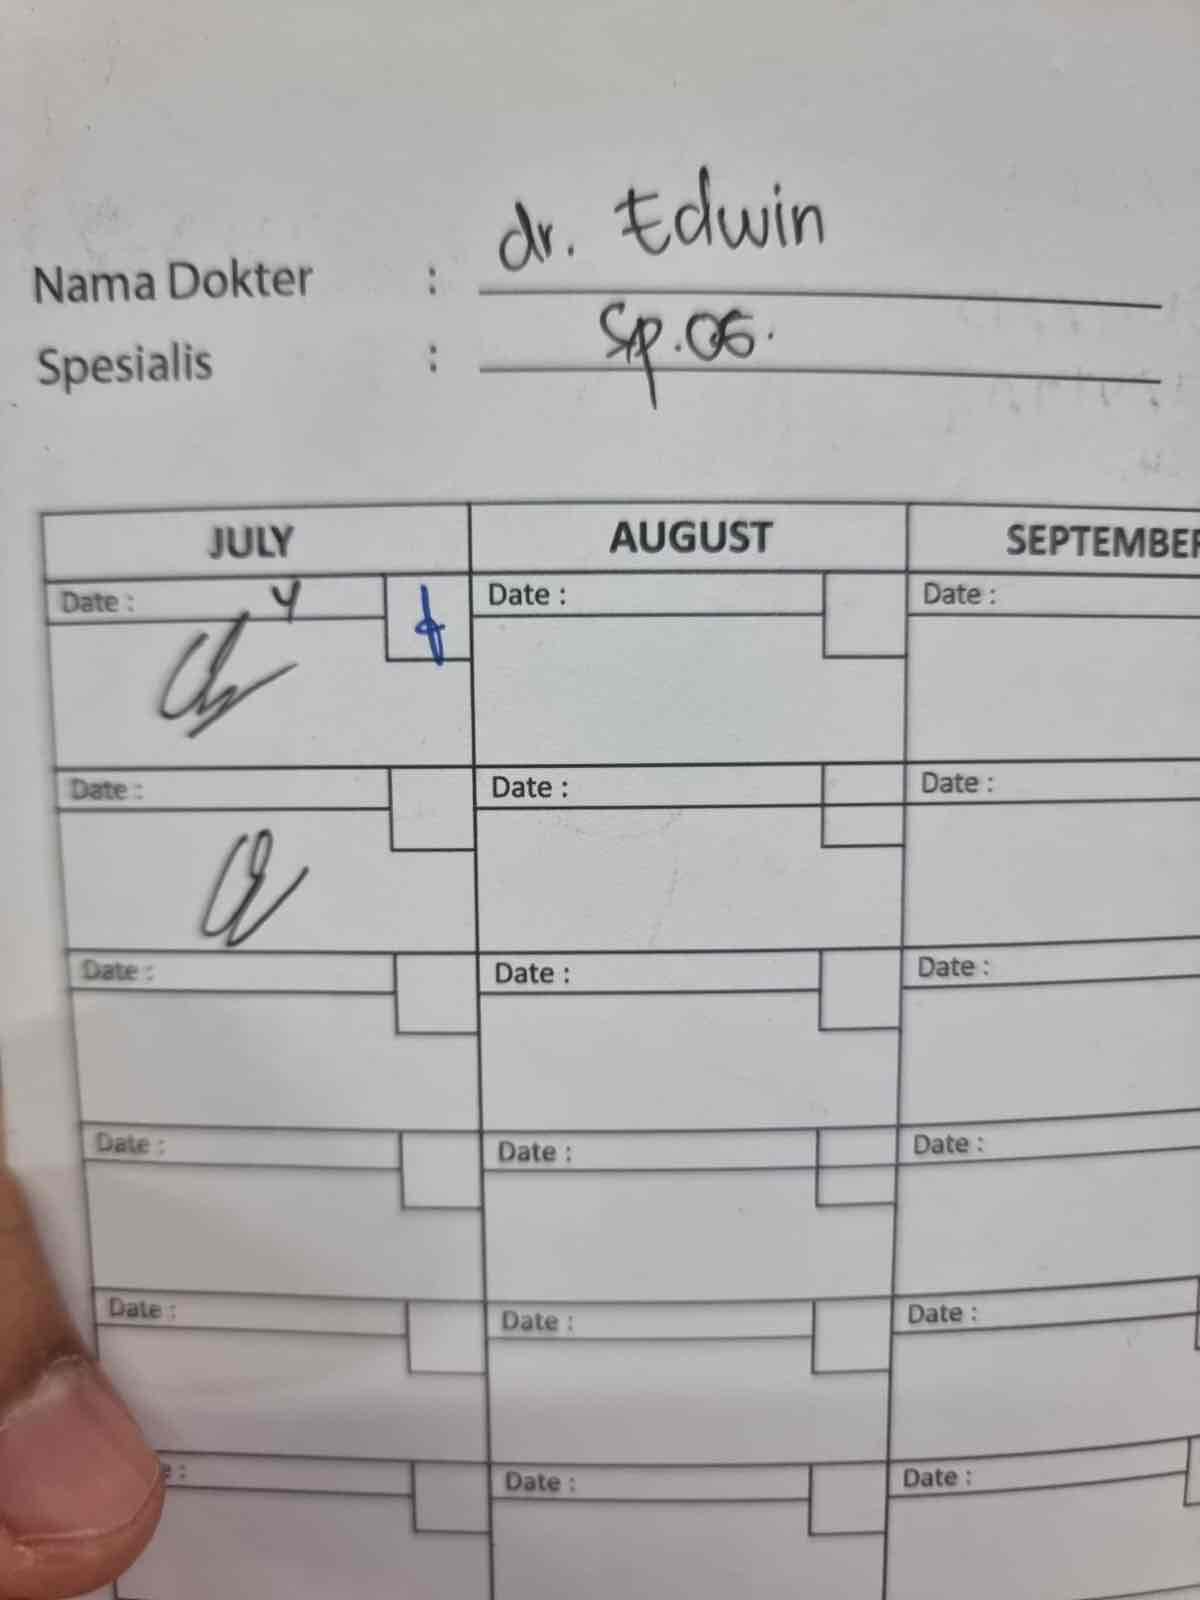 Nama Dokter : dr. Edwin
Spesialis : Sp.OG.
JULY AUGUST SEPTEMBER
Date : 4 Date : Date :
Date : Date : Date :
Date : Date : Date :
Date : Date : Date :
Date : Date : Date :
e : Date : Date :